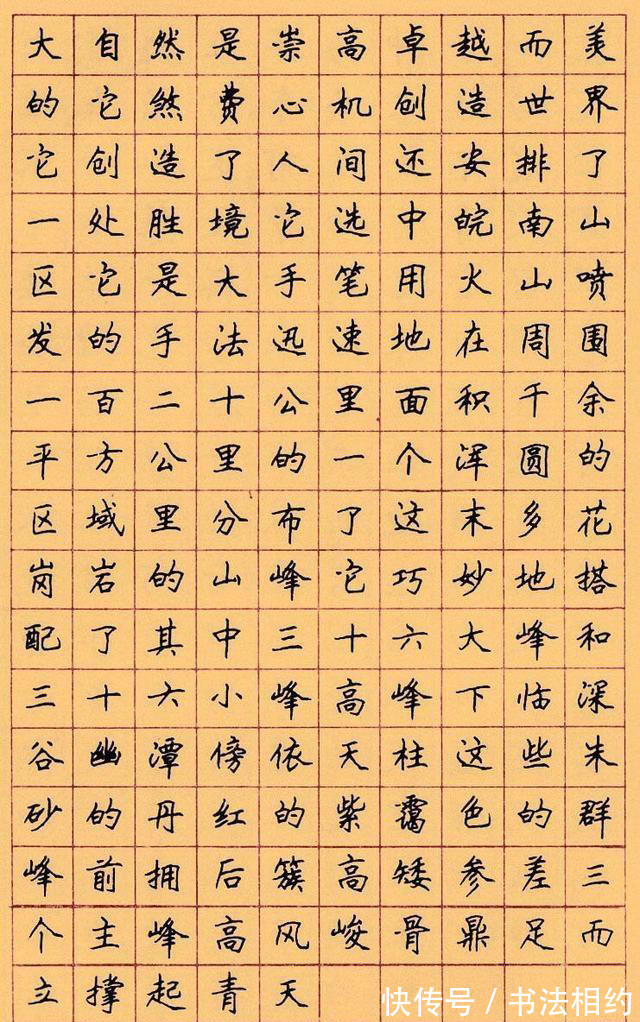 大自然是崇高卓越而美
的它煞费心机创造世界
它创造了人间还安排了
一处胜境它选中皖南山
区它是大手笔用火山喷
发的手法迅速地在周围
一百二十公里面积千余
平方公里的一个浑圆的
区域里分布了这末多花
岗岩的山峰它巧妙地搭
配了其中三十六大峰和
三十六小峰高峰下临深
谷幽潭傍依天柱这些朱
砂的丹红的紫霭色的群
峰前拥后簇高矮参差三
个主峰高风峻骨鼎足而
立撑起青天
快传号/书法相约